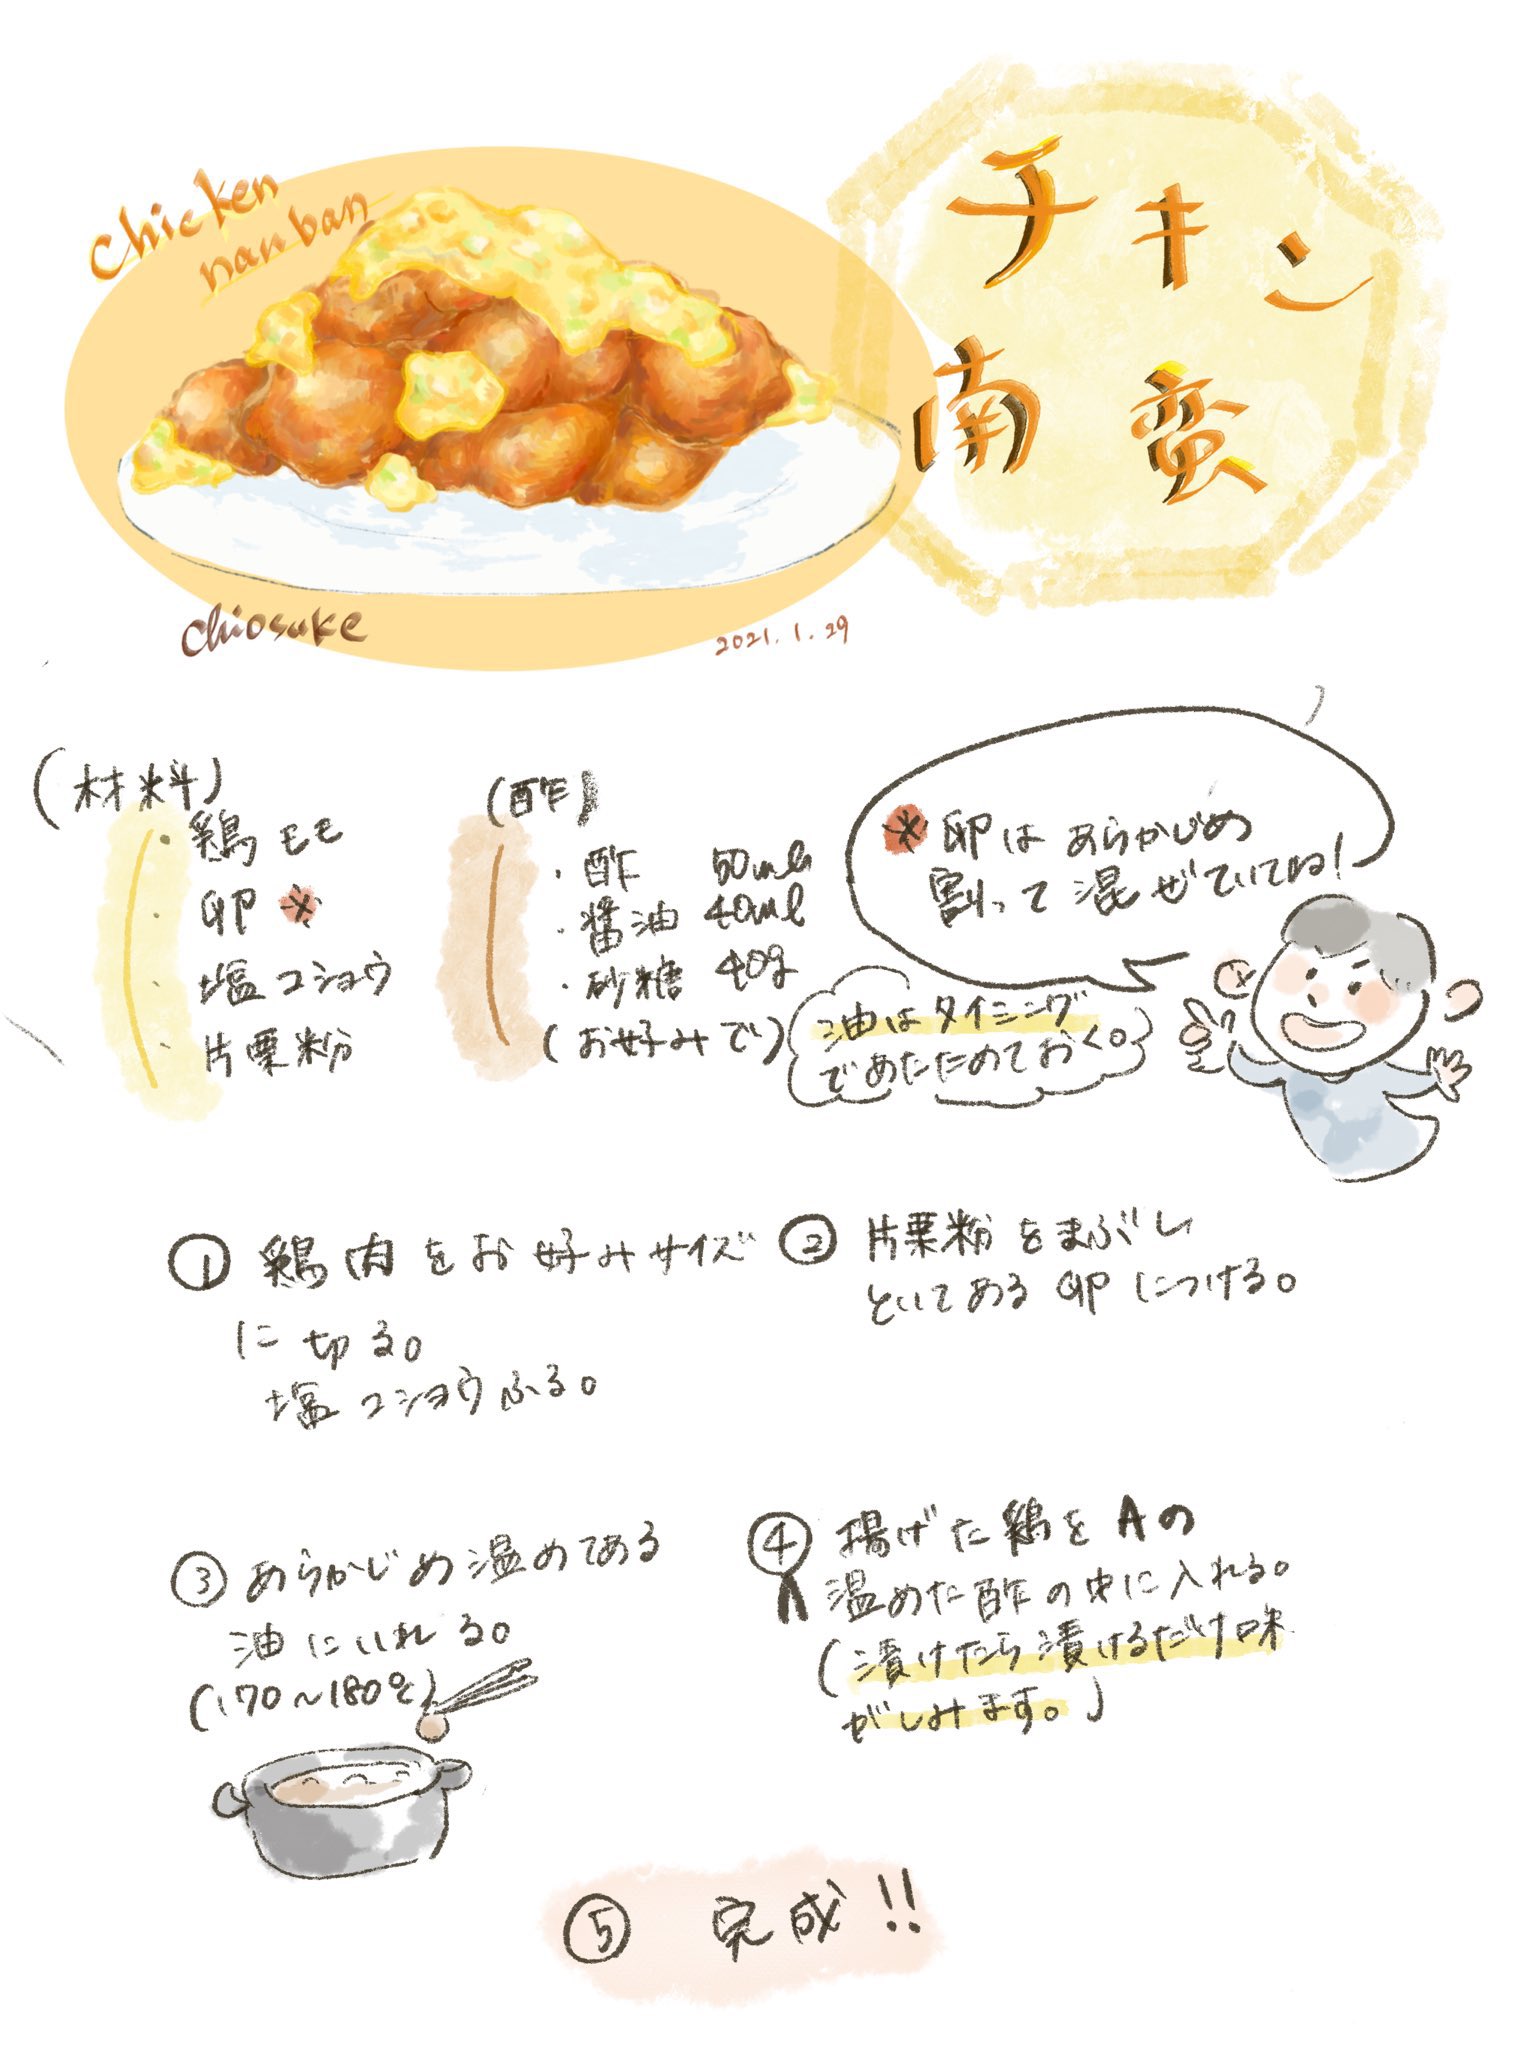 Chicken
nanban
チキン
南蛮
chiosuke
2021.1.29
(材料)
・鶏モモ
・卵※
・塩コショウ
・片栗粉
(酢)
・酢 50ml
・醤油 40ml
・砂糖 40g
(お好みで)
※卵はあらかじめ
割って混ぜていてね!
油はタイミング
であたためておく。
① 鶏肉をお好みサイズ
に切る。
塩コショウふる。
② 片栗粉をまぶし
といてある卵につける。
③ あらかじめ温めてある
油にいれる。
(170〜180℃)
④ 揚げた鶏をAの
温めた酢の中に入れる。
(漬けたら漬けるだけ味
がしみます。)
⑤ 完成!!